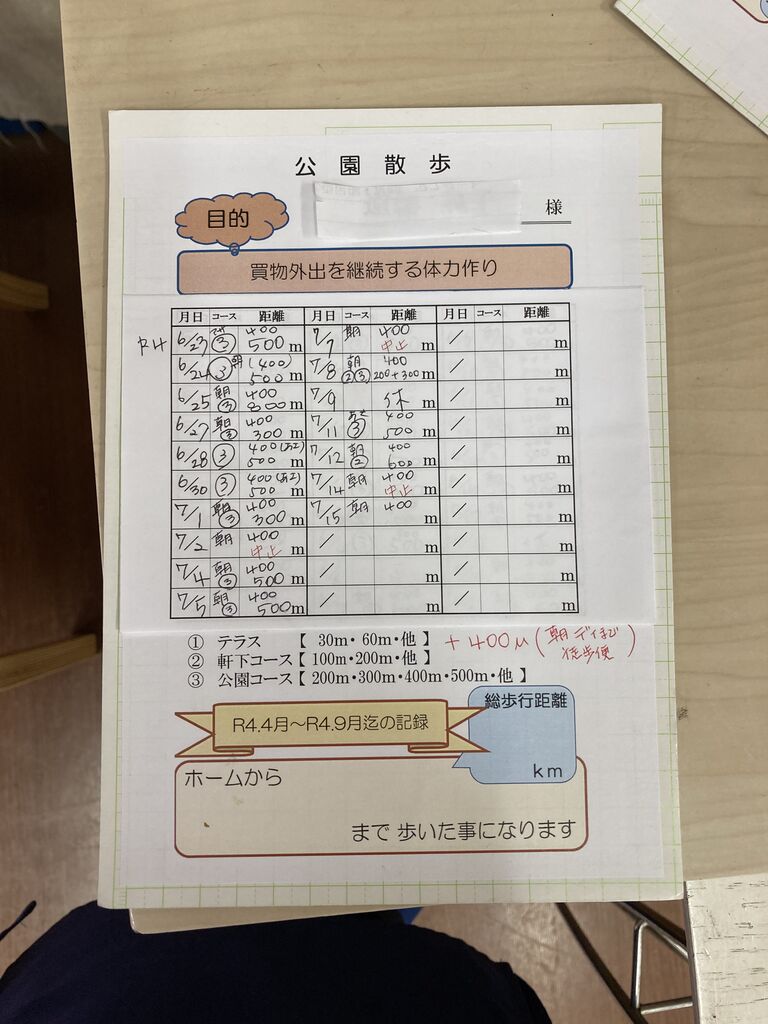 公園散歩
目的
様
買物外出を継続する体力作り
R4
月日 コース 距離 月日 コース 距離 月日 コース 距離
6/23 ③ 400 500 m 7/7 朝 400 中止 m / m
6/24 ③ 朝 (400) 500 m 7/8 朝 ②③ 400 200+300 m / m
6/25 朝 ③ 400 800 m 7/9 休 m / m
6/27 朝 ③ 400 300 m 7/11 ③ 400 500 m / m
6/28 ③ 400 500 m 7/12 朝 ② 400 600 m / m
6/30 ③ 400 500 m 7/14 朝 400 中止 m / m
7/1 朝 ③ 400 300 m 7/15 朝 400 m / m
7/2 朝 400 中止 m / m / m
7/4 朝 ③ 400 500 m / m / m
7/5 朝 ③ 400 500 m / m / m
① テラス 【 30m・60m・他 】 +400m (朝 デイまで 徒歩便)
② 軒下コース【 100m・200m・他 】
③ 公園コース【 200m・300m・400m・500m・他 】
総歩行距離
R4.4月～R4.9月迄の記録
km
ホームから
まで 歩いた事になります